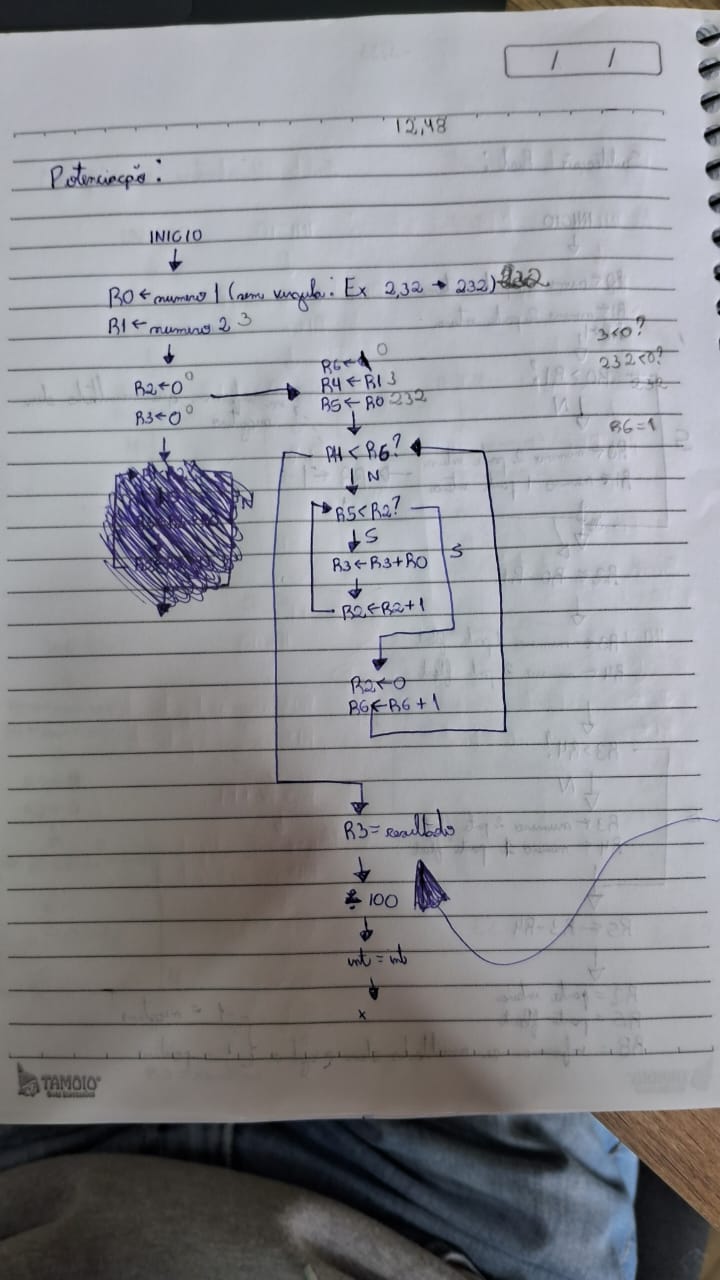 / /
12,48
Potenciação:
INICIO
R0 ← numero 1 (sem virgula: Ex 2,32 → 232) 232
R1 ← numero 2 3
R2 ← 0 0
R3 ← 0 0
R6 ← 0
R4 ← R1 3
R5 ← R0 232
3<0?
232<0?
R6=1
R4 < R6?
N
R5 < R2?
S
S
R3 ← R3 + R0
R2 ← R2 + 1
R2 ← 0
R6 ← R6 + 1
R3 = resultado
÷ 100
int = int
x
TAMOIO